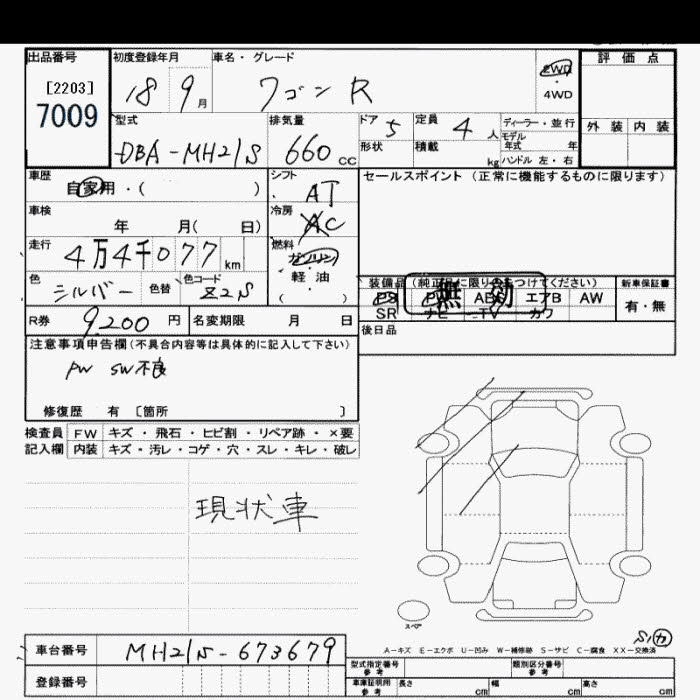 出品番号 初度登録年月 車名・グレード 評価点
[2203]
7009
18 9月 ワゴン R 2WD・4WD
型式 排気量 ドア 5 定員 4人 ディーラー・並行 外装 内装
モデル年式 年
DBA-MH21S 660cc 形状 積載 kg ハンドル 左・右
車歴 自家用・( ) シフト AT セールスポイント (正常に機能するものに限ります)
車検 年 月( 日) 冷房 AC
走行 4万4千077km 燃料 ガソリン・軽・油 ( )
色 シルバー 色替 色コード Z2S
装備品(純正品に限り○をつけてください) 新車保証書
無効
PS PW ABS エアB AW 有・無
SR ナビ TV カワ
R券 9,200円 名変期限 月 日 後日品
注意事項申告欄(不具合内容等は具体的に記入して下さい)
PW SW不良
修復歴 有 [箇所 ]
検査員 FW キズ・飛石・ヒビ割・リペア跡・×要
記入欄 内装 キズ・汚レ・コゲ・穴・スレ・キレ・破レ
現状車
スペア
A-キズ E-エクボ U-凹み W-補修跡 S-サビ C-腐食 XX-交換済
車台番号 MH21S-673679
型式指定番号 参考 類別区分番号 参考
登録番号 車庫証明用 参考 長さ cm 幅 cm 高さ cm